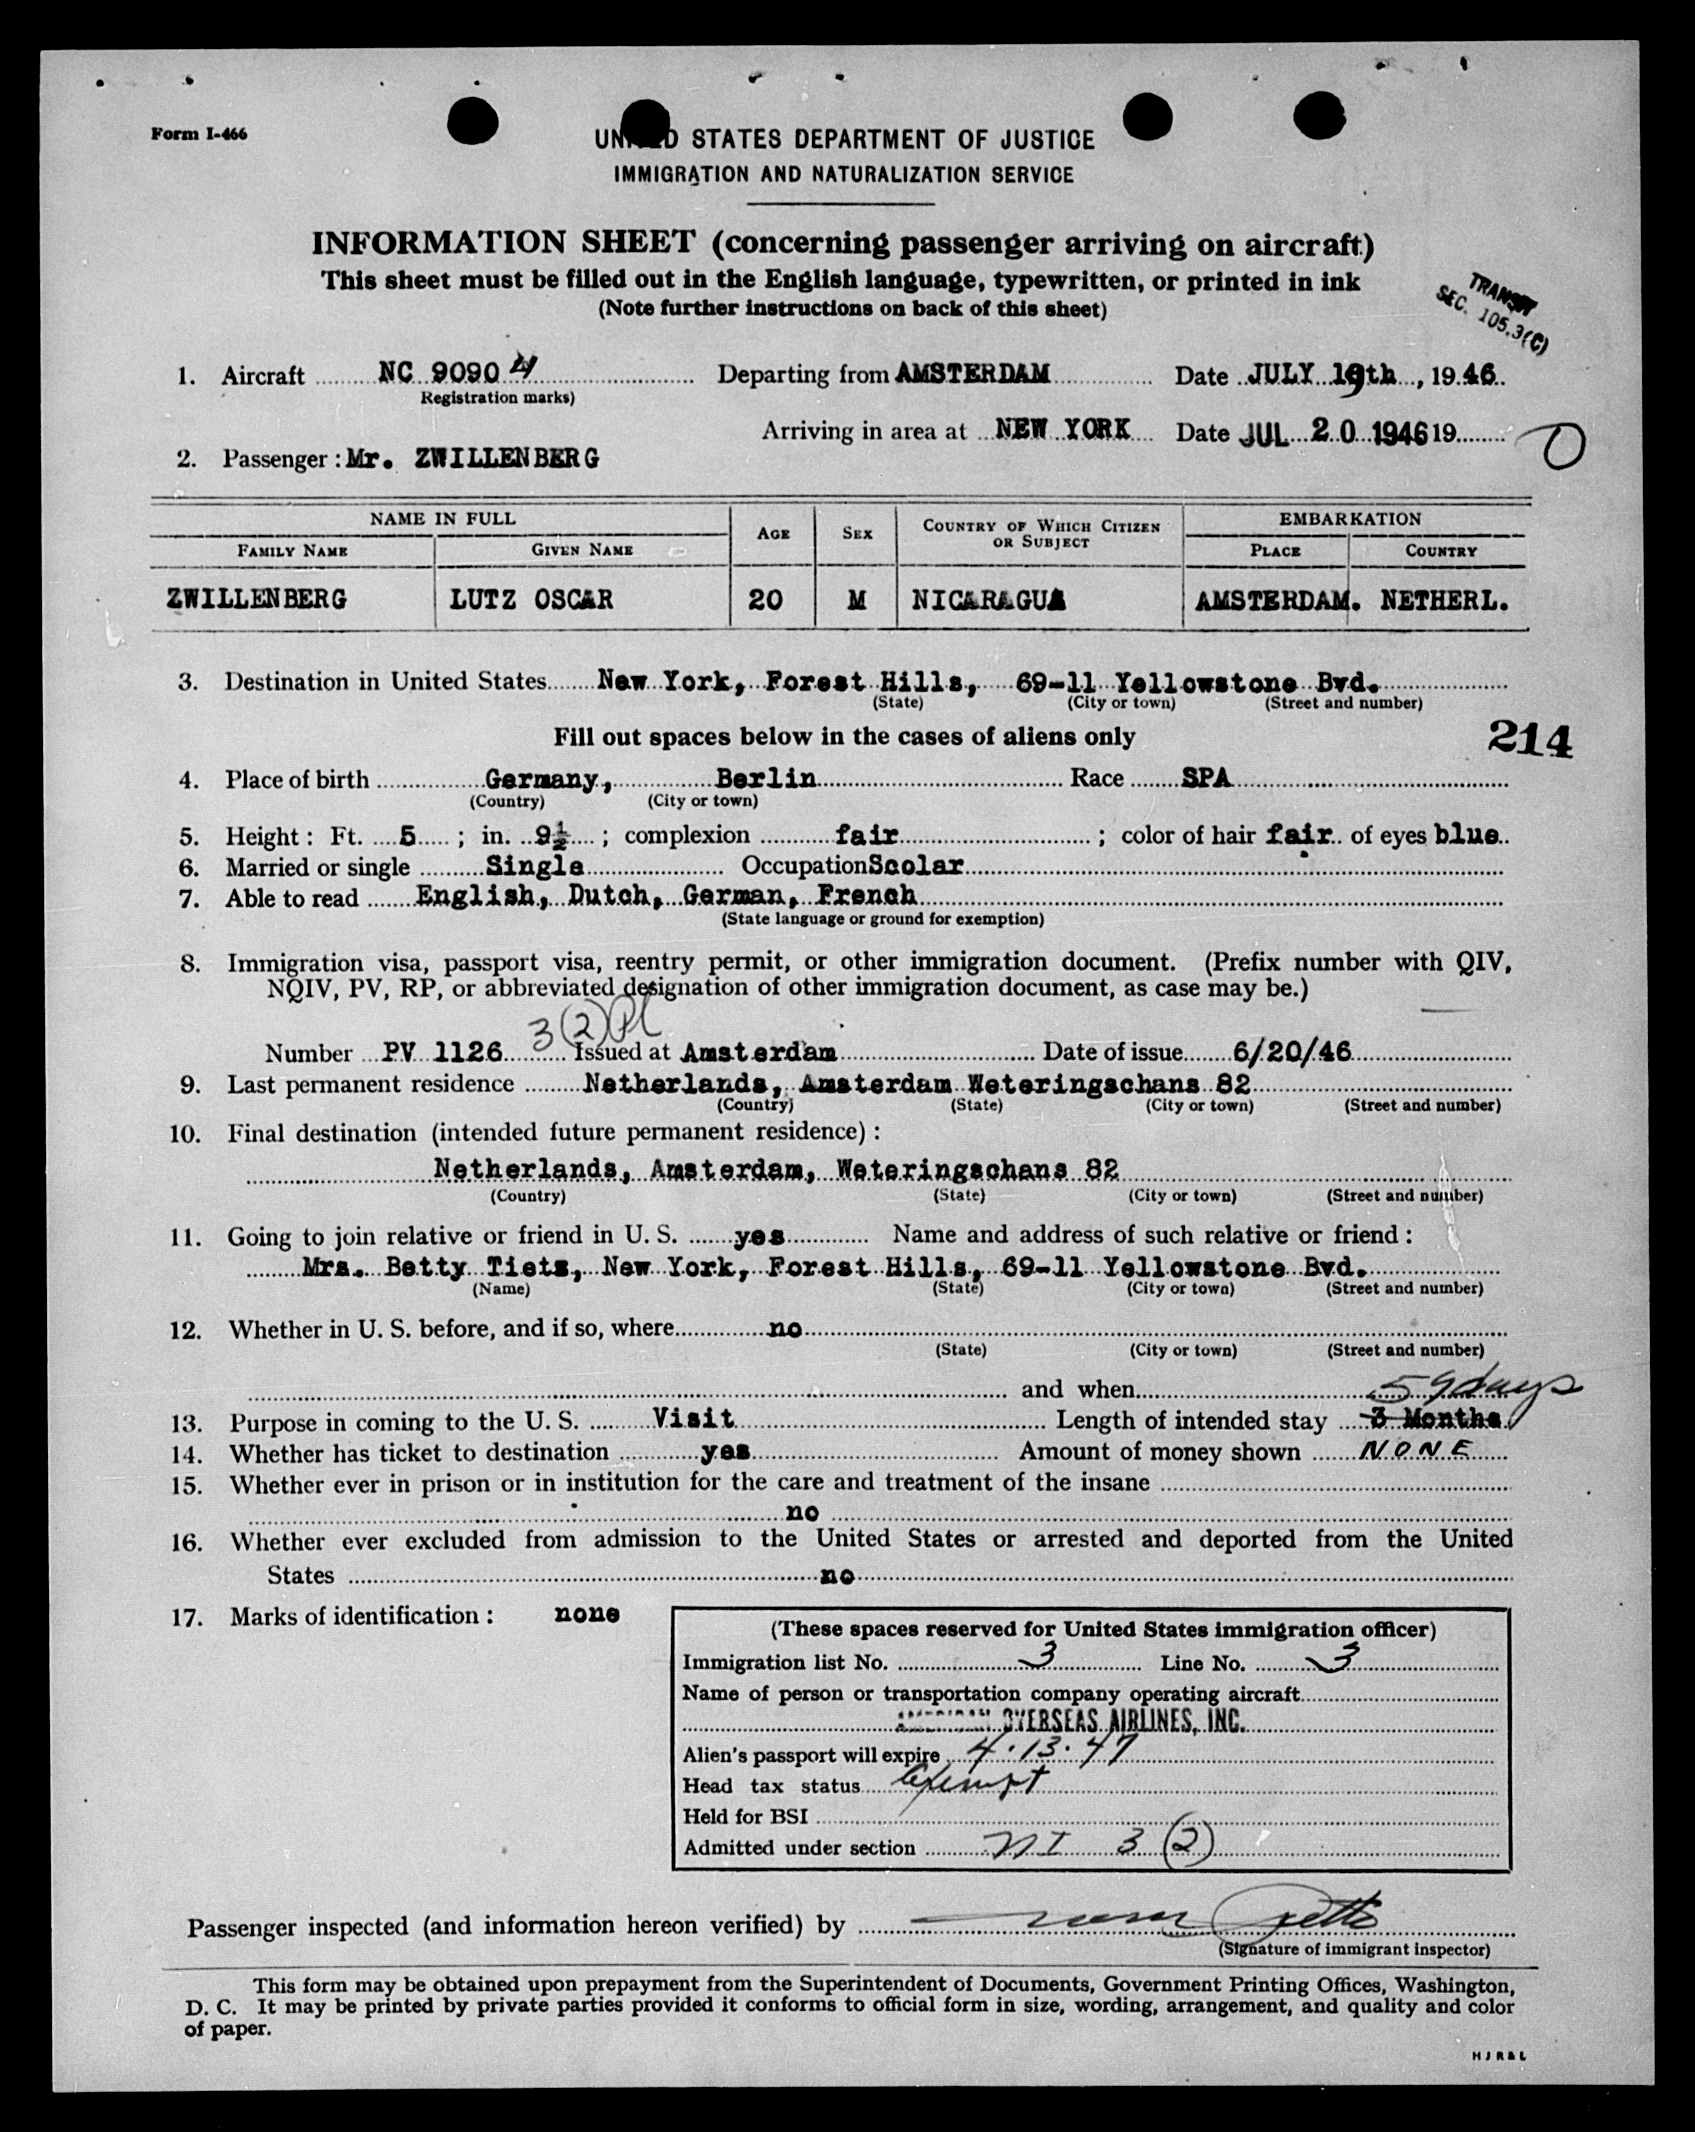 Form I-466
UNITED STATES DEPARTMENT OF JUSTICE
IMMIGRATION AND NATURALIZATION SERVICE
INFORMATION SHEET (concerning passenger arriving on aircraft)
This sheet must be filled out in the English language, typewritten, or printed in ink
(Note further instructions on back of this sheet)
TRANSIT
SEC. 105.3(C)
1. Aircraft NC 9090 4 Departing from AMSTERDAM Date JULY 19th, 19 46
Registration marks)
Arriving in area at NEW YORK Date JUL 20 1946 19
2. Passenger: Mr. ZWILLENBERG
NAME IN FULL AGE SEX COUNTRY OF WHICH CITIZEN OR SUBJECT EMBARKATION
FAMILY NAME GIVEN NAME PLACE COUNTRY
ZWILLENBERG LUTZ OSCAR 20 M NICARAGUA AMSTERDAM. NETHERL.
3. Destination in United States New York, Forest Hills, 69-11 Yellowstone Bvd.
(State) (City or town) (Street and number)
Fill out spaces below in the cases of aliens only
214
4. Place of birth Germany, Berlin Race SPA
(Country) (City or town)
5. Height: Ft. 5 ; in. 9½ ; complexion fair ; color of hair fair of eyes blue
6. Married or single Single Occupation Scolar
7. Able to read English, Dutch, German, French
(State language or ground for exemption)
8. Immigration visa, passport visa, reentry permit, or other immigration document. (Prefix number with QIV,
NQIV, PV, RP, or abbreviated designation of other immigration document, as case may be.)
3(2)
Number PV 1126 Issued at Amsterdam Date of issue 6/20/46
9. Last permanent residence Netherlands, Amsterdam Weteringschans 82
(Country) (State) (City or town) (Street and number)
10. Final destination (intended future permanent residence):
Netherlands, Amsterdam, Weteringschans 82
(Country) (State) (City or town) (Street and number)
11. Going to join relative or friend in U. S. yes Name and address of such relative or friend:
Mrs. Betty Tietz, New York, Forest Hills, 69-11 Yellowstone Bvd.
(Name) (State) (City or town) (Street and number)
12. Whether in U. S. before, and if so, where no
(State) (City or town) (Street and number)
and when
59 days
13. Purpose in coming to the U. S. Visit Length of intended stay 3 Months
14. Whether has ticket to destination yes Amount of money shown NONE
15. Whether ever in prison or in institution for the care and treatment of the insane
no
16. Whether ever excluded from admission to the United States or arrested and deported from the United
States no
17. Marks of identification: none
(These spaces reserved for United States immigration officer)
Immigration list No. 3 Line No. 3
Name of person or transportation company operating aircraft
AMERICAN OVERSEAS AIRLINES, INC.
Alien's passport will expire 4.13.47
Head tax status Exempt
Held for BSI
Admitted under section NI 3 (2)
Passenger inspected (and information hereon verified) by
(Signature of immigrant inspector)
This form may be obtained upon prepayment from the Superintendent of Documents, Government Printing Offices, Washington,
D. C. It may be printed by private parties provided it conforms to official form in size, wording, arrangement, and quality and color
of paper.
H J R & L